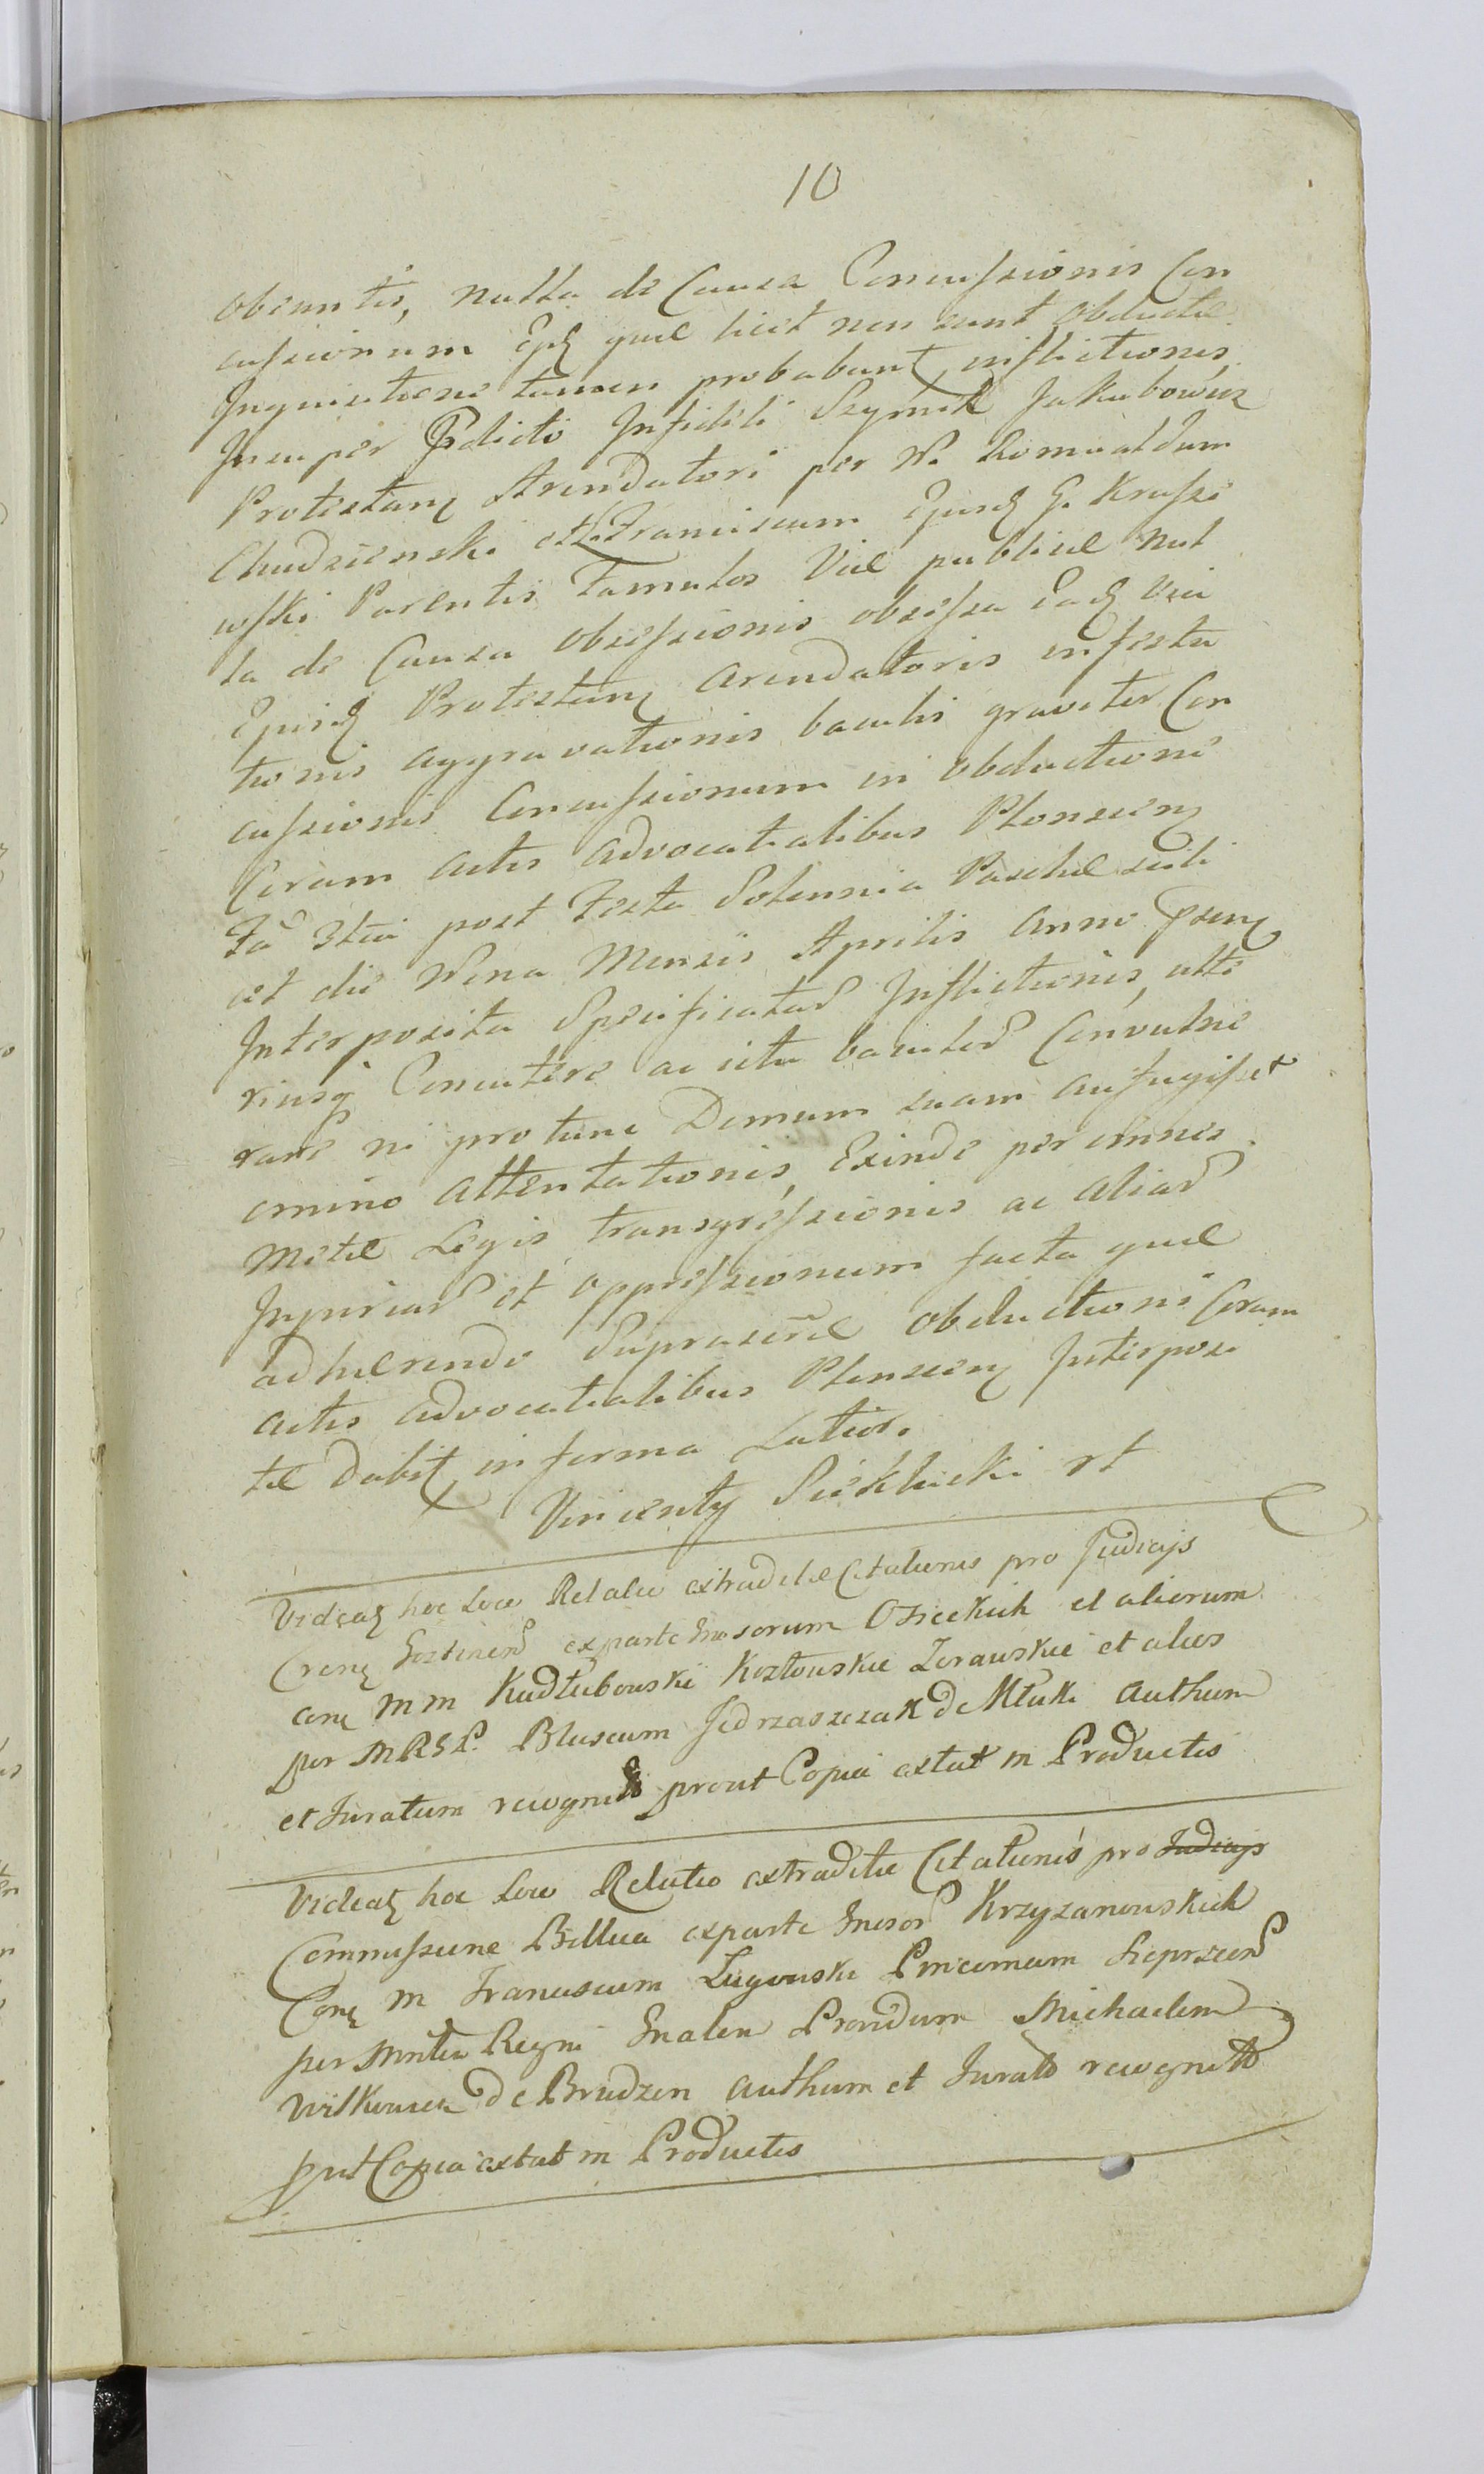 10
obeuntis, nulla de Causa Concussionis Con
cussionum Ejd quae licet non sunt obductae
Inquisitione tamen probabunt, inflictionis
Insuper Pdicto Infideli Szymek Jakubowicz
Protestan Arendatori per N. Romualdum
Chudzienski et Franciscum Ejusd G. Krusze
wski Parentis Famulos Viae publicae nul
la de Causa obsessionis obsessa Ead Via
Ejusd Protestan Arendatoris infesta
tionis aggravationis baculis graviter Con
cussionis Concussionum in obductione
Coram actis Advocatialibus Plonscen
Fa 3tia post Festa Solennia Paschae scili
cet die Nona Mensis Aprilis Anno Psen
Interposita Specificatar Inflictionis, ulte
riusq Concutere ac ictu baculor Convulne
rare ni protunc Domum suam aufugisset
omnino attentationis, Exinde per omnes
metae Legis transgressionis ac aliar
Injuriar et oppressionum facta quae
adhaerendo Suprascrae obductioni Coram
actis advocatialibus Plonscen Interposi
tae Dabit in forma Latiori
Vincenty Sieklucki rt
Videat hoc Loco Relatio extraditae Citationis pro Judicijs
Cren Gostinen ex parte Gnosorum Osieckich et aliorum
con M M Kudlubowski Kozlowskie Zorawskie et alios
per MRGP. Blascum Jedrzaszczak de Mluki Authum
et Juratum recognit prout Copia extat in Productis
Videat hoc Loco Relatio extraditae Citationis pro Judicijs
Commissione Bellica ex parte Gnosor Krzyzanowskich
Con M Franciscum Lugowski Pincernam Sieprscen
per Mntem Regni Gnalem Providum Michaelem
Witkowicz de Brudzen authum et Jurato recognitto
put Copia extat in Productis